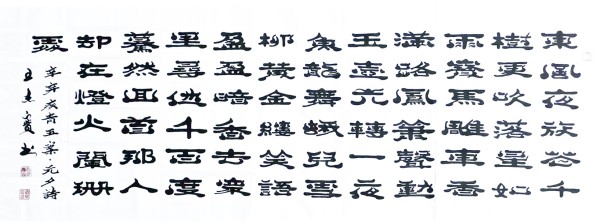 東風夜放花千
樹更吹落星如
雨寶馬雕車香
滿路鳳簫聲動
玉壺光轉一夜
魚龍舞蛾兒雪
柳黃金縷笑語
盈盈暗香去衆
里尋他千百度
驀然回首那人
却在燈火闌珊
處
辛弃疾青玉案·元夕詩
王書